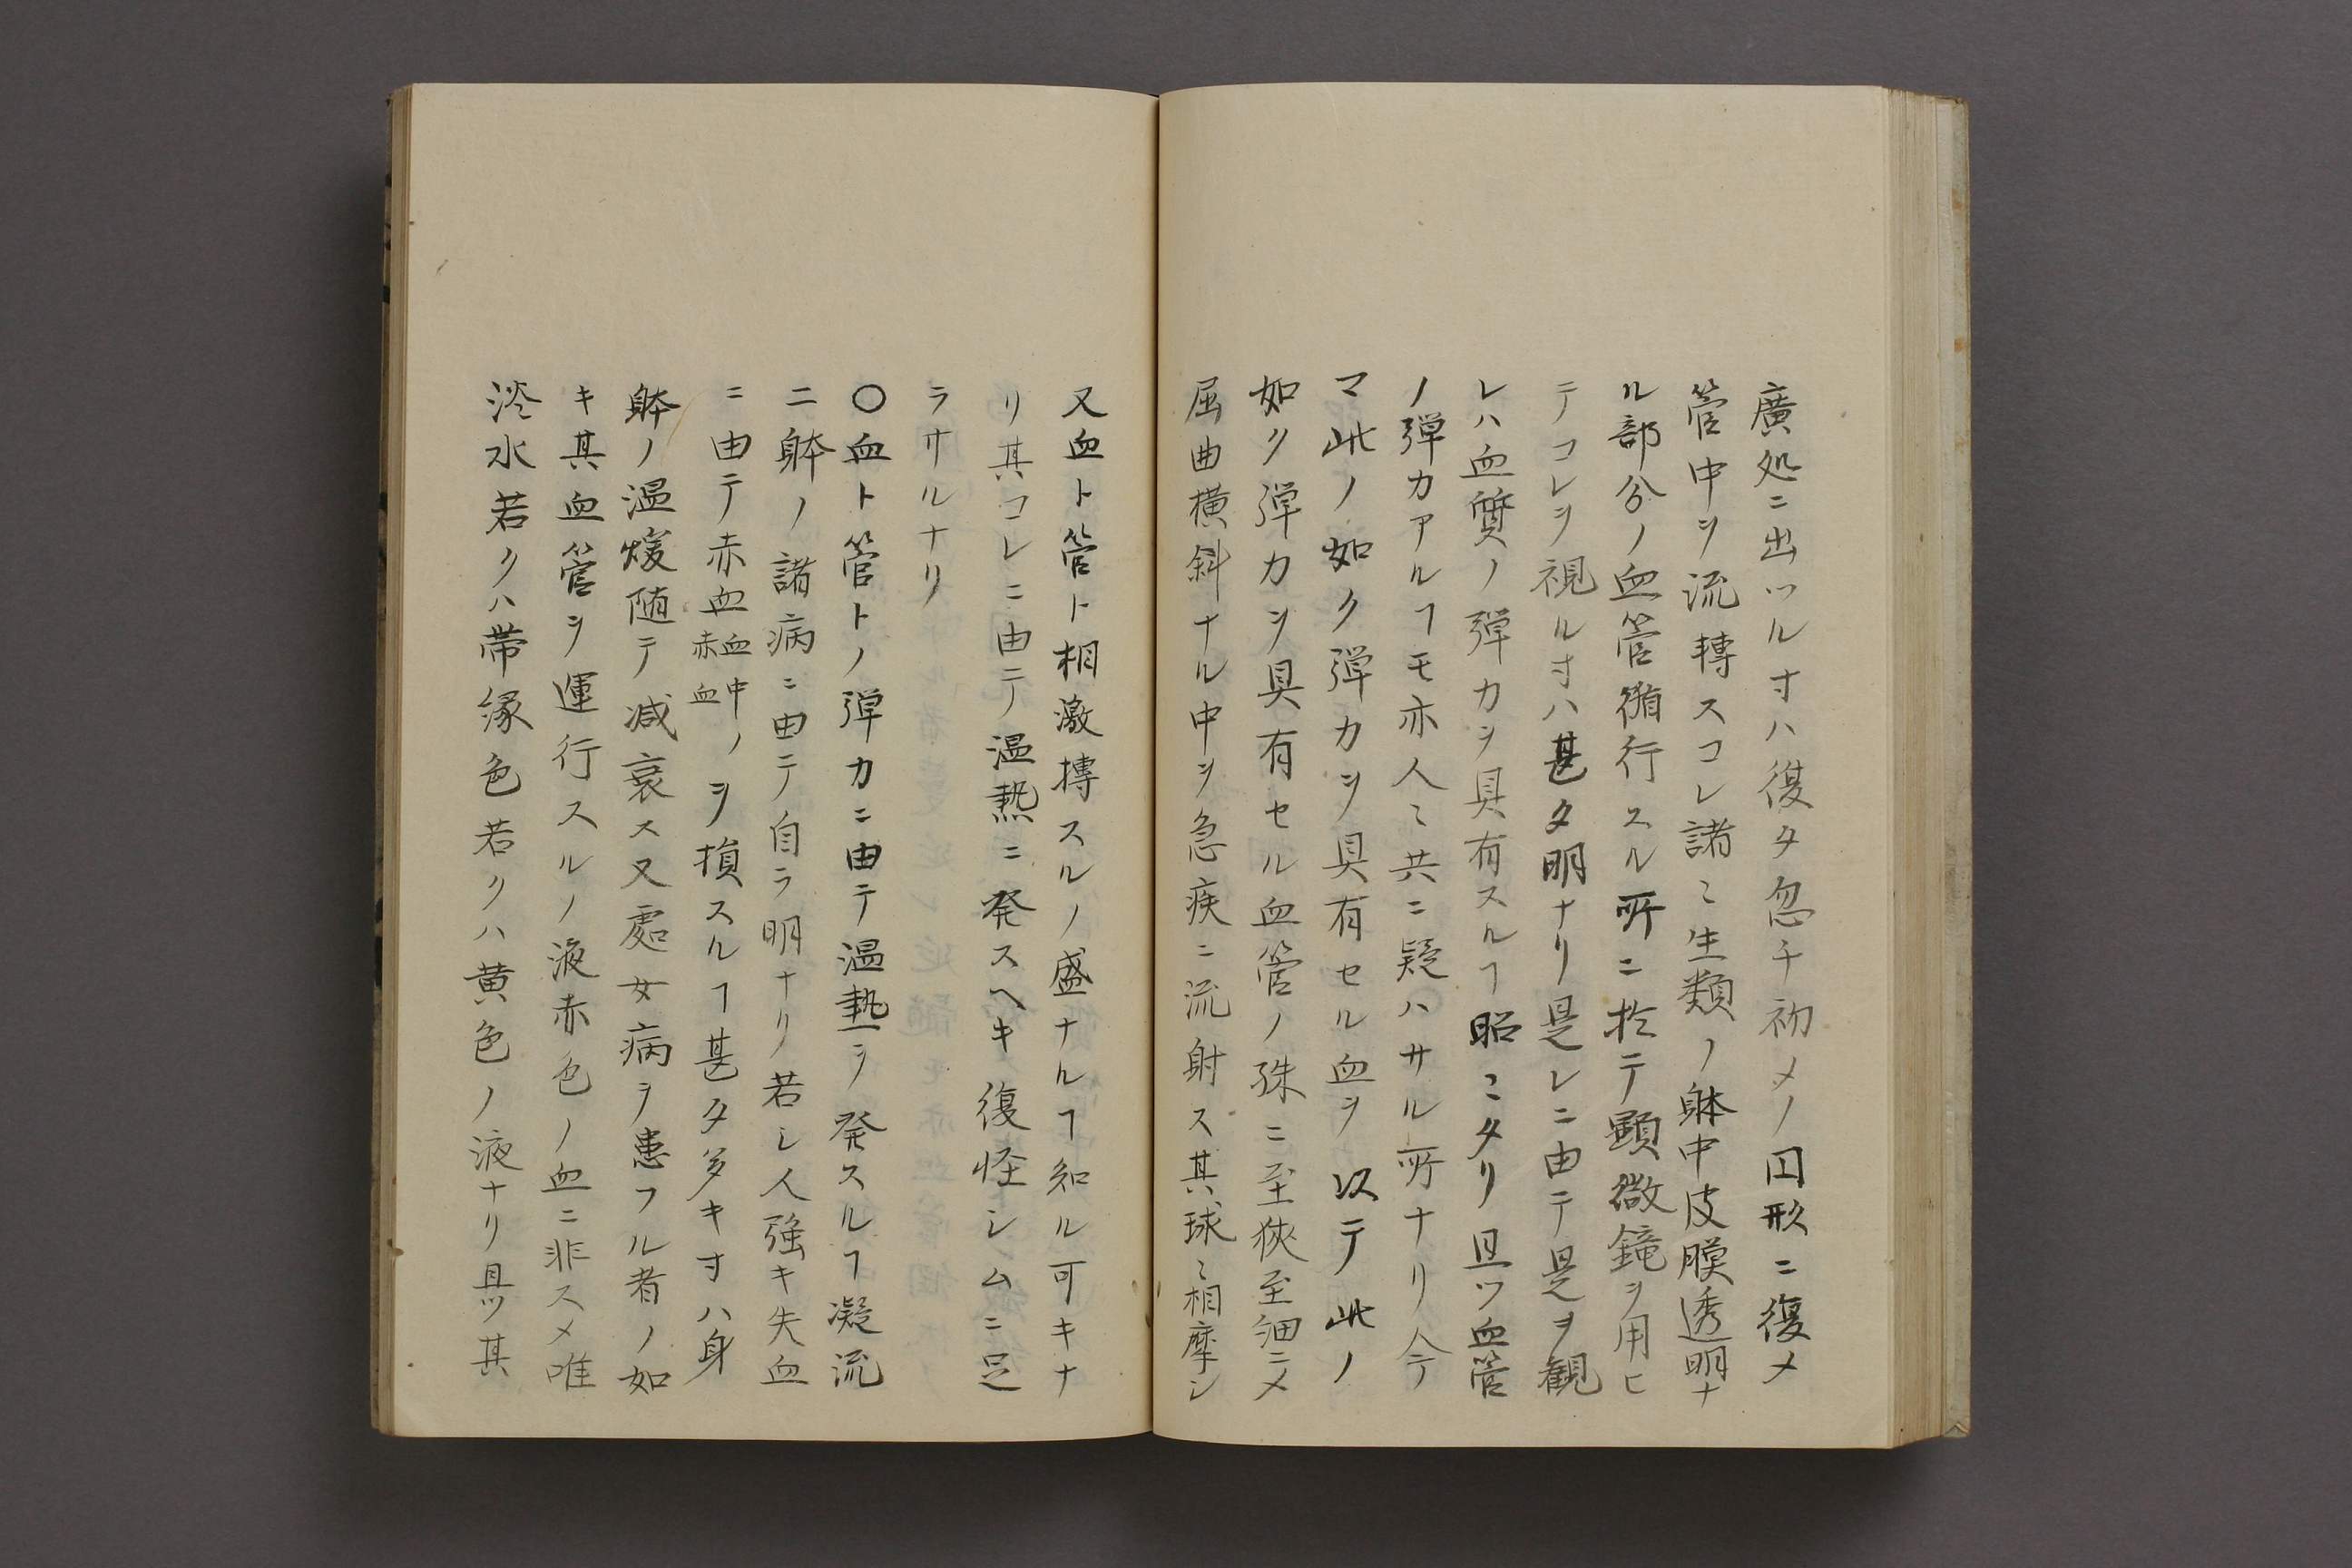 廣処ニ出ツル寸ハ復タ忽チ初メノ円形ニ復メ
管中ヲ流轉スコレ諸〻生類ノ躰中皮膜透明ナ
ル部分ノ血管循行スル所ニ於テ顕微鏡ヲ用ヒ
テコレヲ視ル寸ハ甚タ明ナリ是レニ由テ是ヲ観
レハ血質ノ弾力ヲ具有スルヿ昭〻タリ且ツ血管
ノ弾力アルヿモ亦人〻共ニ疑ハサル所ナリ今
マ此ノ如ク弾力ヲ具有セル血ヲ以テ此ノ
如ク弾力ヲ具有セル血管ノ殊ニ至狹至細ニメ
屈曲横斜ナル中ヲ急疾ニ流射ス其球〻相摩シ
又血ト管ト相激搏スルノ盛ナルヿ知ル可キナ
リ其コレニ由テ温熱ニ発スヘキ復怪シムニ足
ラサルナリ
〇血ト管トノ弾力ニ由テ温熱ヲ発スルヿ凝流
二躰ノ諸病ニ由テ自ラ明ナリ若シ人強キ失血
ニ由テ赤血血中ノ赤血ヲ損スルヿ甚タ多キ寸ハ身
躰ノ温煖随テ減衰ス又處女病ヲ患フル者ノ如
キ其血管ヲ運行スルノ液赤色ノ血ニ非スメ唯
淡水若クハ帯緑色若クハ黄色ノ液ナリ具ツ其